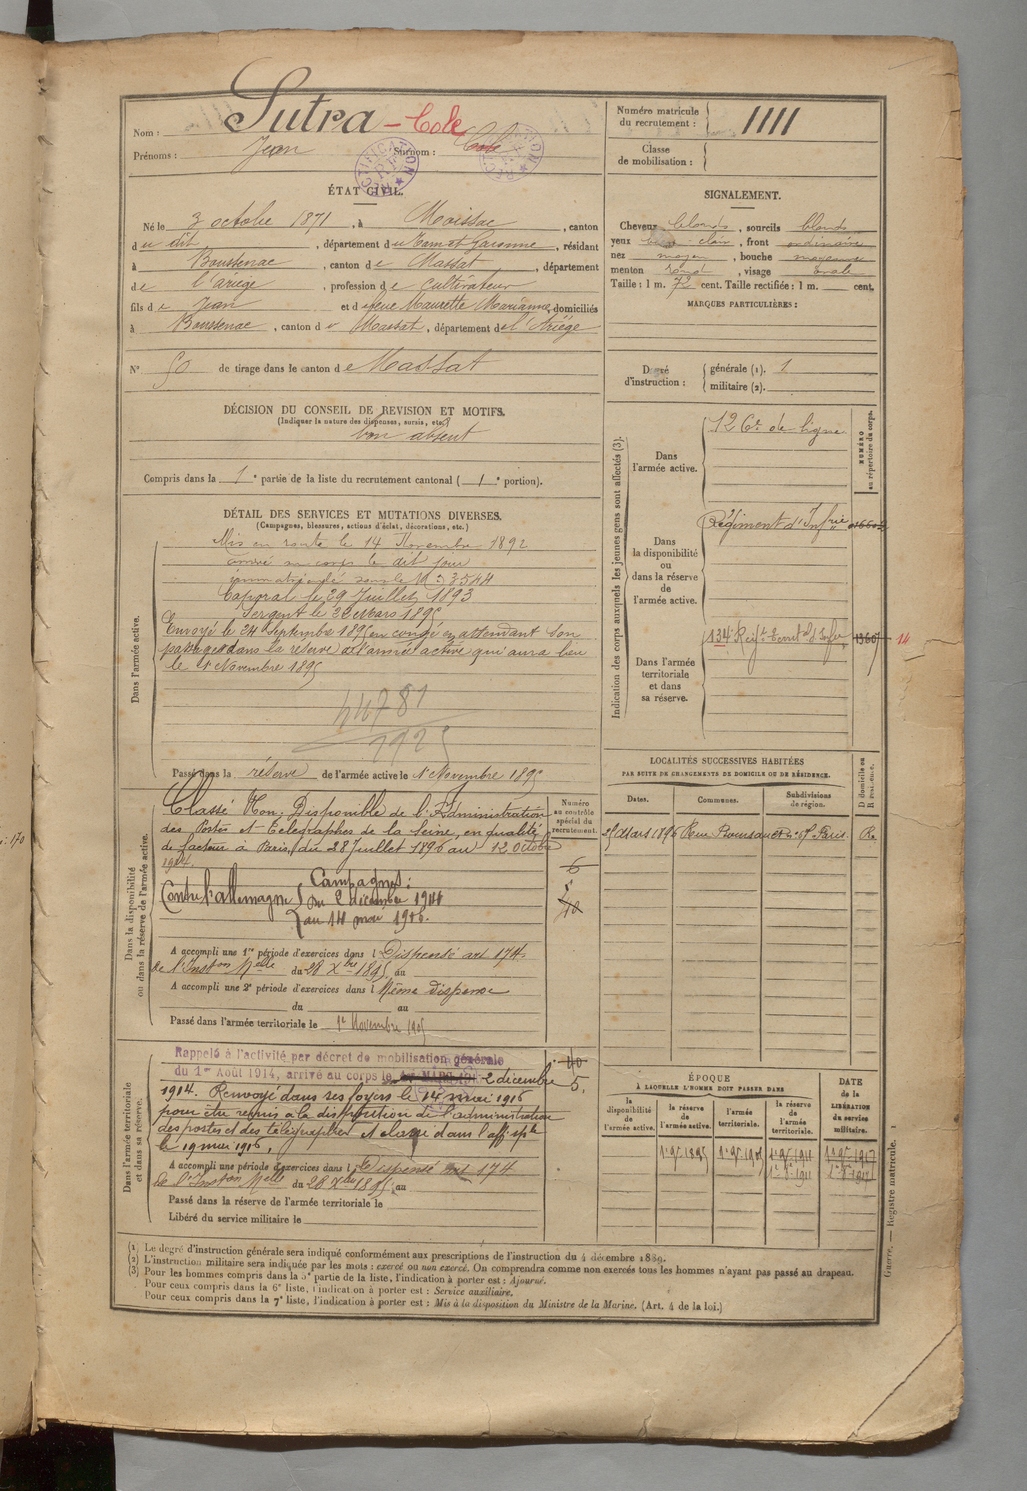 Nom : Sutra - Cole
Prénoms : Jean Surnom : Cole
RECTIFICATION R.F.
RECTIFICATION
Numéro matricule du recrutement : 1111
Classe de mobilisation :
ÉTAT CIVIL.
Né le 3 octobre 1871, à Moissac, canton
du dit, département du Tarn et Garonne, résidant
à Boussenac, canton de Massat, département
de l'ariège, profession de cultivateur
fils de Jean et de feue Maurette Marianne, domiciliés
à Boussenac, canton de Massat, département de l'Ariège
N° 50 de tirage dans le canton de Massat
SIGNALEMENT.
Cheveux blonds, sourcils blonds
yeux clair, front ordinaire
nez moyen, bouche moyenne
menton rond, visage ovale
Taille : 1 m. 72 cent. Taille rectifiée : 1 m. cent.
MARQUES PARTICULIÈRES :
Degré d'instruction : générale (1). 1
militaire (2).
DÉCISION DU CONSEIL DE REVISION ET MOTIFS.
(Indiquer la nature des dispenses, sursis, etc.)
bon absent
Compris dans la 1e partie de la liste du recrutement cantonal (1e portion).
DÉTAIL DES SERVICES ET MUTATIONS DIVERSES.
(Campagnes, blessures, actions d'éclat, décorations, etc.)
Dans l'armée active.
Mis en route le 14 Novembre 1892
arrivé au corps le dit jour
immatriculé sous le N° 3544
Caporal le 29 Juillet 1893
Sergent le 22 Mars 1895
Envoyé le 24 Septembre 1895 en congé en attendant son
passage dans la réserve de l'armée active qui aura lieu
le 1r Novembre 1895
44781
1925
Passé dans la réserve de l'armée active le 1r Novembre 1895
Indication des corps auxquels les jeunes gens sont affectés (3).
NUMÉRO au répertoire du corps.
Dans l'armée active.
12 Gt de ligne
Dans la disponibilité ou dans la réserve de l'armée active.
Régiment d'Infrie
Dans l'armée territoriale et dans sa réserve.
134 Regt territ d'Infie 14
Dans la disponibilité ou dans la réserve de l'armée active.
Numéro au contrôle spécial du recrutement.
Classé Non Disponible de l'Administration
des Postes et Télégraphes de la Seine, en qualité
de facteur à Paris, du 28 Juillet 1896 au 12 Octobre
1914.
6
Campagnes :
Contre l'allemagne du 2 décembre 1914
au 14 mai 1916.
A accompli une 1re période d'exercices dans l Dispensé art 174
de l'Inston Melle du 28 Xbre 1895 au
A accompli une 2e période d'exercices dans l Même dispense
du au
Passé dans l'armée territoriale le 1r Novembre 1905
LOCALITÉS SUCCESSIVES HABITÉES
PAR SUITE DE CHANGEMENTS DE DOMICILE OU DE RÉSIDENCE.
D domicile ou R résidence.
Dates. Communes. Subdivisions de région.
25 Mars 1896 Paris R.
Dans l'armée territoriale et dans sa réserve.
Rappelé à l'activité par décret de mobilisation générale
du 1er Août 1914, arrivé au corps le 2 décembre
1914. Renvoyé dans ses foyers le 14 mai 1916
pour être remis à la disposition de l'administration
des postes et des télégraphes et classé dans l'aff. sple
le 19 mai 1916.
40
5.
A accompli une période d'exercices dans l Dispensé art 174
de l'Inston Melle du 28 Xbre 1895 au
Passé dans la réserve de l'armée territoriale le
Libéré du service militaire le
ÉPOQUE
À LAQUELLE L'HOMME DOIT PASSER DANS
DATE de la LIBÉRATION du service militaire.
la disponibilité de l'armée active. la réserve de l'armée active. l'armée territoriale. la réserve de l'armée territoriale.
1r 9bre 1895 1r 9bre 1905 1r 9bre 1911 1r 9bre 1917
(1) Le degré d'instruction générale sera indiqué conformément aux prescriptions de l'instruction du 4 décembre 1889.
(2) L'instruction militaire sera indiquée par les mots : exercé ou non exercé. On comprendra comme non exercés tous les hommes n'ayant pas passé au drapeau.
(3) Pour les hommes compris dans la 5e partie de la liste, l'indication à porter est : Ajourné.
Pour ceux compris dans la 6e liste, l'indication à porter est : Service auxiliaire.
Pour ceux compris dans la 7e liste, l'indication à porter est : Mis à la disposition du Ministre de la Marine. (Art. 4 de la loi.)
Guerre. — Registre matricule. 1